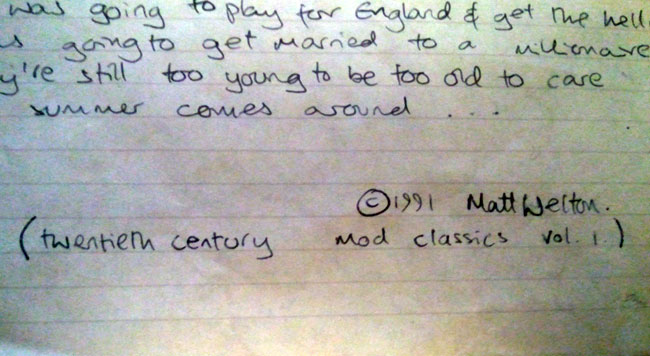 was going to play for England & get the hell
is going to get married to a millionare
y're still too young to be too old to care
summer comes around ...
©1991 Matt Welton.
(twentieth century mod classics vol. 1.)